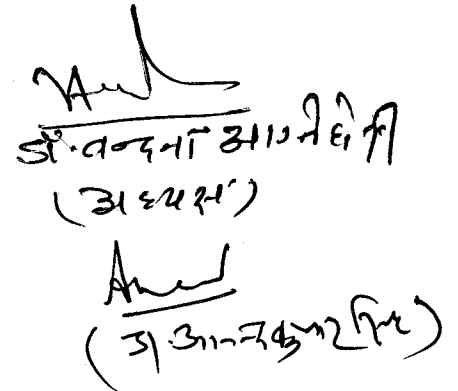 डॉ. वन्दना अग्निहोत्री
(अध्यक्ष)
Anand
(डॉ. आनन्द कुमार सिंह)